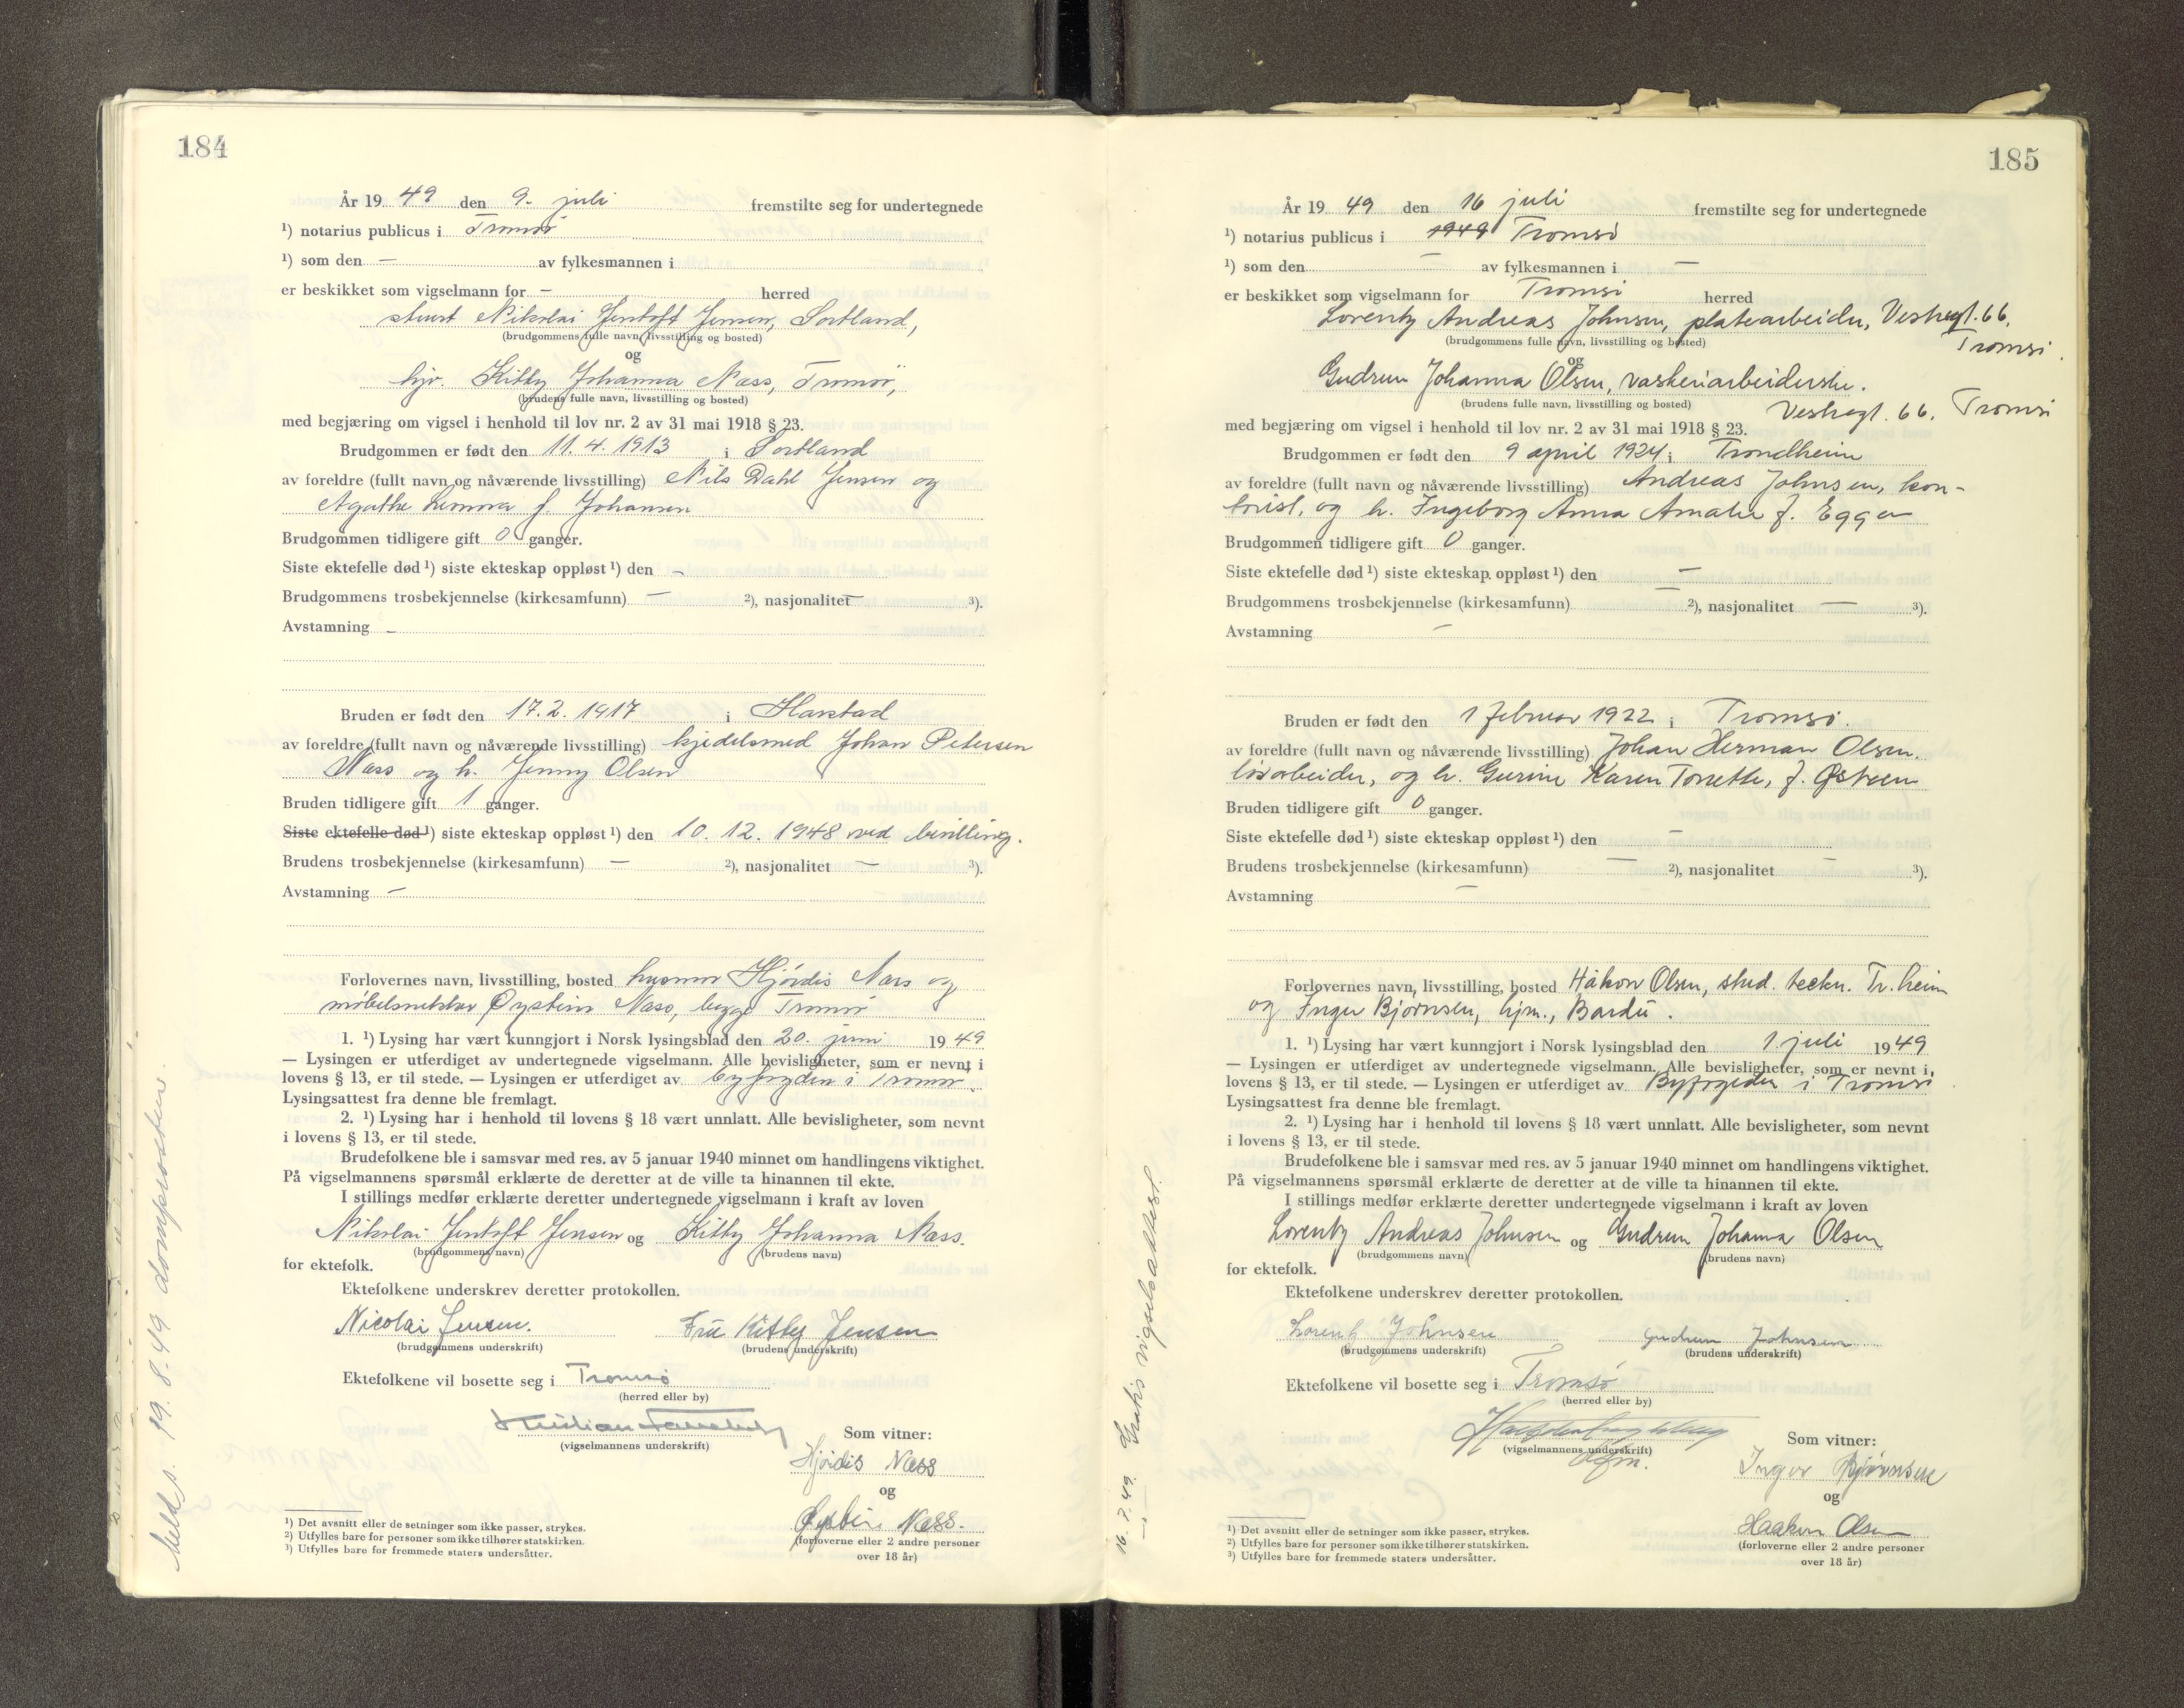 184
År 19 49 den 9. juli fremstilte seg for undertegnede
¹) notarius publicus i Tromsø
¹) som den — av fylkesmannen i
er beskikket som vigselmann for — herred
stuert Nikolai Jentoft Jensen, Sortland,
(brudgommens fulle navn, livsstilling og bosted)
og
hjv. Kitty Johanna Næss, Tromsø,
(brudens fulle navn, livsstilling og bosted)
med begjæring om vigsel i henhold til lov nr. 2 av 31 mai 1918 § 23.
Brudgommen er født den 11.4.1913 i Sortland
av foreldre (fullt navn og nåværende livsstilling) Nils Dahl Jensen og
Agathe Lenora f. Johansen
Brudgommen tidligere gift 0 ganger.
Siste ektefelle død ¹) siste ekteskap oppløst ¹) den —
Brudgommens trosbekjennelse (kirkesamfunn) — ²), nasjonalitet — ³).
Avstamning —
Bruden er født den 17.2.1917 i Harstad
av foreldre (fullt navn og nåværende livsstilling) kjedelsmed Johan Petersen
Næss og h. Jenny Olsen
Bruden tidligere gift 1 ganger.
Siste ektefelle død ¹) siste ekteskap oppløst ¹) den 10.12.1948 ved bevilling.
Brudens trosbekjennelse (kirkesamfunn) — ²), nasjonalitet — ³).
Avstamning —
Forlovernes navn, livsstilling, bosted husmor Hjördis Næss og
møbelsnekker Øystein Næss, begge Tromsø
1. ¹) Lysing har vært kunngjort i Norsk lysingsblad den 20. juni 19 49
— Lysingen er utferdiget av undertegnede vigselmann. Alle bevisligheter, som er nevnt i
lovens § 13, er til stede. — Lysingen er utferdiget av byfogden i Tromsø.
Lysingsattest fra denne ble fremlagt.
2. ¹) Lysing har i henhold til lovens § 18 vært unnlatt. Alle bevisligheter, som nevnt
i lovens § 13, er til stede.
Brudefolkene ble i samsvar med res. av 5 januar 1940 minnet om handlingens viktighet.
På vigselmannens spørsmål erklærte de deretter at de ville ta hinannen til ekte.
I stillings medfør erklærte deretter undertegnede vigselmann i kraft av loven
Nikolai Jentoft Jensen og Kitty Johanna Næss.
(brudgommens navn) (brudens navn)
for ektefolk.
Ektefolkene underskrev deretter protokollen.
Nicolai Jensen. Fru Kitty Jensen
(brudgommens underskrift) (brudens underskrift)
Ektefolkene vil bosette seg i Tromsø
(herred eller by)
Kristian
(vigselmannens underskrift)
Som vitner:
Hjördis Næss
og
Øystein Næss.
(forloverne eller 2 andre personer
over 18 år)
¹) Det avsnitt eller de setninger som ikke passer, strykes.
²) Utfylles bare for personer som ikke tilhører statskirken.
³) Utfylles bare for fremmede staters undersåtter.
Melds. 19.8.49 domprosten.
185
År 19 49 den 16 juli fremstilte seg for undertegnede
¹) notarius publicus i 1949 Tromsö
¹) som den — av fylkesmannen i —
er beskikket som vigselmann for Tromsö herred
Lorentz Andreas Johnsen, platearbeider, Vestregt. 66,
Tromsö.
(brudgommens fulle navn, livsstilling og bosted)
og
Gudrun Johanna Olsen, vaskeriarbeiderske.
(brudens fulle navn, livsstilling og bosted)
Vestregt. 66. Tromsö
med begjæring om vigsel i henhold til lov nr. 2 av 31 mai 1918 § 23.
Brudgommen er født den 9 april 1924 i Trondheim
av foreldre (fullt navn og nåværende livsstilling) Andreas Johnsen, kon-
torist, og h. Ingeborg Anna Amalie f. Eggen
Brudgommen tidligere gift 0 ganger.
Siste ektefelle død ¹) siste ekteskap oppløst ¹) den —
Brudgommens trosbekjennelse (kirkesamfunn) — ²), nasjonalitet — ³).
Avstamning —
Bruden er født den 1 februar 1922 i Tromsö.
av foreldre (fullt navn og nåværende livsstilling) Johan Herman Olsen,
lösarbeider, og h. Gurine Karen Tonette, f. Østreem
Bruden tidligere gift 0 ganger.
Siste ektefelle død ¹) siste ekteskap oppløst ¹) den —
Brudens trosbekjennelse (kirkesamfunn) — ²), nasjonalitet — ³).
Avstamning —
Forlovernes navn, livsstilling, bosted Håkon Olsen, stud. techn. Tr.heim
og Inger Bjørnsen, hjm., Bardu.
1. ¹) Lysing har vært kunngjort i Norsk lysingsblad den 1. juli 19 49
— Lysingen er utferdiget av undertegnede vigselmann. Alle bevisligheter, som er nevnt i
lovens § 13, er til stede. — Lysingen er utferdiget av Byfogden i Tromsö
Lysingsattest fra denne ble fremlagt.
2. ¹) Lysing har i henhold til lovens § 18 vært unnlatt. Alle bevisligheter, som nevnt
i lovens § 13, er til stede.
Brudefolkene ble i samsvar med res. av 5 januar 1940 minnet om handlingens viktighet.
På vigselmannens spørsmål erklærte de deretter at de ville ta hinannen til ekte.
I stillings medfør erklærte deretter undertegnede vigselmann i kraft av loven
Lorentz Andreas Johnsen og Gudrun Johanna Olsen
(brudgommens navn) (brudens navn)
for ektefolk.
Ektefolkene underskrev deretter protokollen.
Lorentz Johnsen Gudrun Johnsen
(brudgommens underskrift) (brudens underskrift)
Ektefolkene vil bosette seg i Tromsö
(herred eller by)
(vigselmannens underskrift)
Som vitner:
Inger Bjørnsen
og
Haakon Olsen
(forloverne eller 2 andre personer
over 18 år)
¹) Det avsnitt eller de setninger som ikke passer, strykes.
²) Utfylles bare for personer som ikke tilhører statskirken.
³) Utfylles bare for fremmede staters undersåtter.
16.7.49. Gratis vigselsattest.